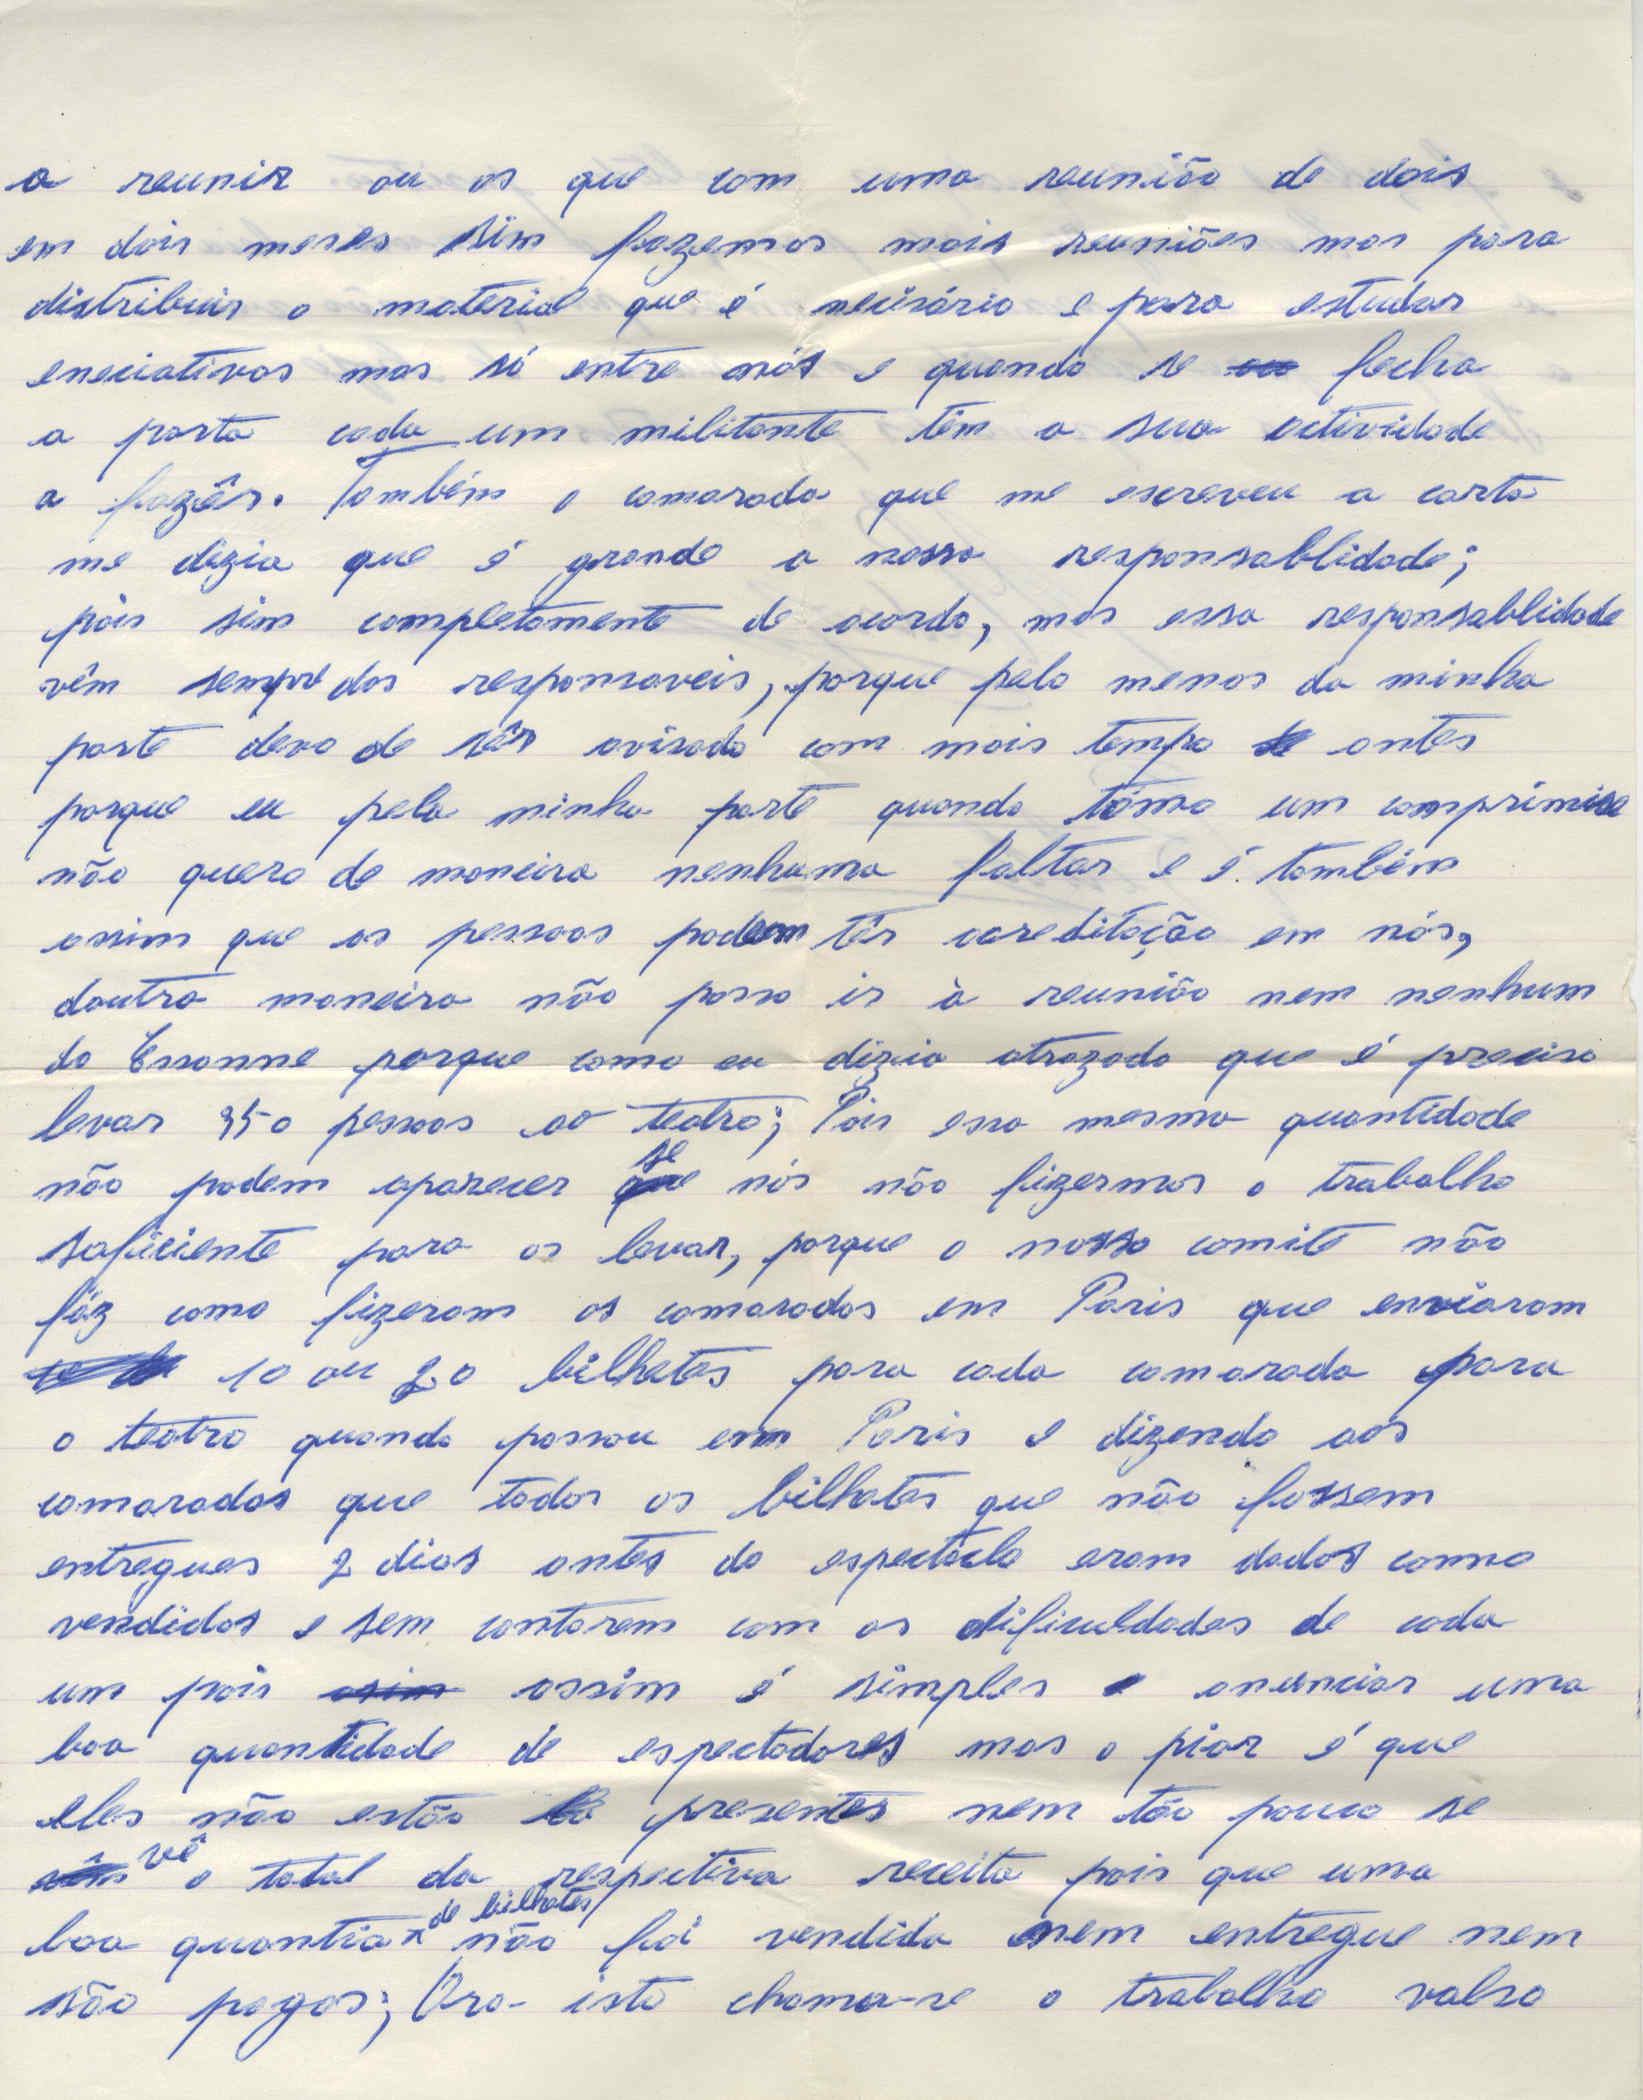 a reunir ou os que com uma reunião de dois
em dois meses sim fazemos mais reuniões mas para
distribuir o material que é necisário e para estudar
eneciativas mas só entre nós e quando se fecha
a porta cada um militante têm a sua actividade
a fazêr. Também o camarada que me escreveu a carta
me dizia que é grande a nossa responsablidade;
pois sim completamente de acordo, mas essa responsablidade
vêm sempre dos responsaveis, porque pelo menos da minha
parte devo de sêr avisado com mais tempo antes
porque eu pela minha parte quando tomo um comprimise
não quero de maneira nenhuma faltar e é também
assim que as pessoas podem têr acreditação em nós,
doutra maneira não posso ir à reunião nem nenhum
do Essonne porque como eu dizia atrazado que é preciso
levar 350 pessoas ao teatro; Pois essa mesma quantidade
não podem aparecer se nós não fizermos o trabalho
suficiente para os levar, porque o nosso comité não
fáz como fizeram os camaradas em Paris que enviaram
10 ou 20 bilhetes para cada camarada para
o teatro quando passou em Paris e dizendo aos
camaradas que todos os bilhetes que não fossem
entregues 2 dias antes do espectáclo eram dados como
vendidos e sem contarem com as dificuldades de cada
um pois assim é simples e anunciar uma
boa quantidade de espectadores mas o pior é que
eles não estão presentes nem tão pouco se
vê o total da respectiva receita pois que uma
boa quantia de bilhetes não foi vendida nem entregue nem
são pagos; Ora isto chama-se o trabalho valso